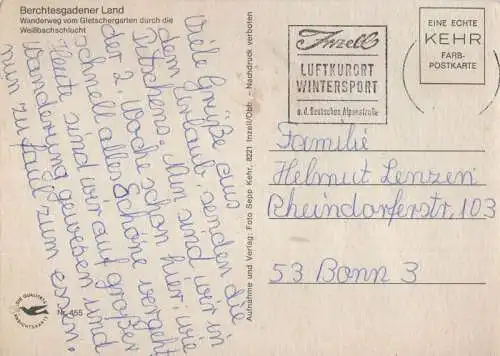 Berchtesgadener Land
Wanderweg vom Gletschergarten durch die
Weißbachschlucht
Viele Grüße aus
dem Urlaub, senden die
Pitschens. Nun sind wir in
der 2. Woche schon hier, wie
schnell alles Schöne vergeht
Heute sind wir auf großer
Wanderung gewesen und
nun zu faul zum essen.
DIE QUALITÄTS
ANSICHTSKARTE
Nr. 455
Aufnahme und Verlag: Foto Sepp Kehr, 8221 Inzell/Obb. – Nachdruck verboten
Inzell
LUFTKURORT
WINTERSPORT
a.d. Deutschen Alpenstraße
EINE ECHTE
KEHR
FARB-
POSTKARTE
Familie
Helmut Lenzen
Rheindorferstr. 103
53 Bonn 3